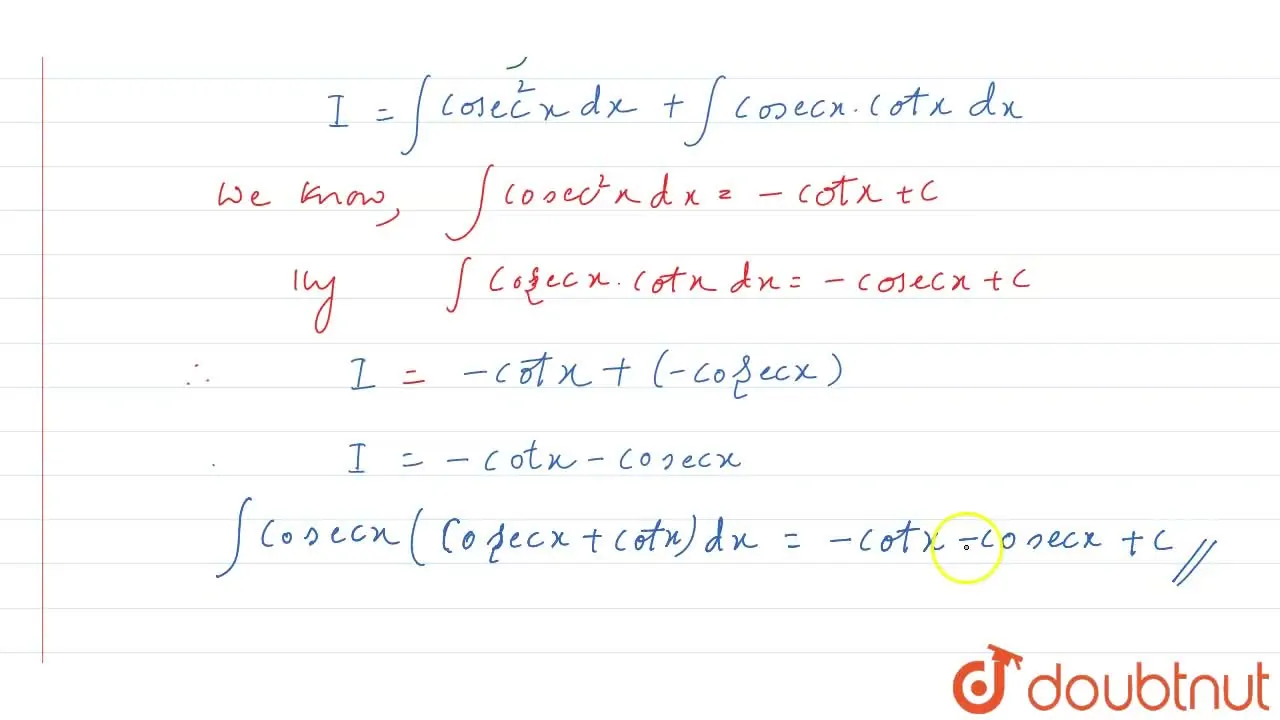 I = ∫ cosec²x dx + ∫ cosecx. cotx dx
We know, ∫ cosec²x dx = - cotx + c
lly ∫ cosecx. cotx dx = - cosecx + c
∴ I = - cotx + (-cosecx)
I = - cotx - cosecx
∫ cosecx ( cosecx + cotx) dx = - cotx - cosecx + c //
doubtnut